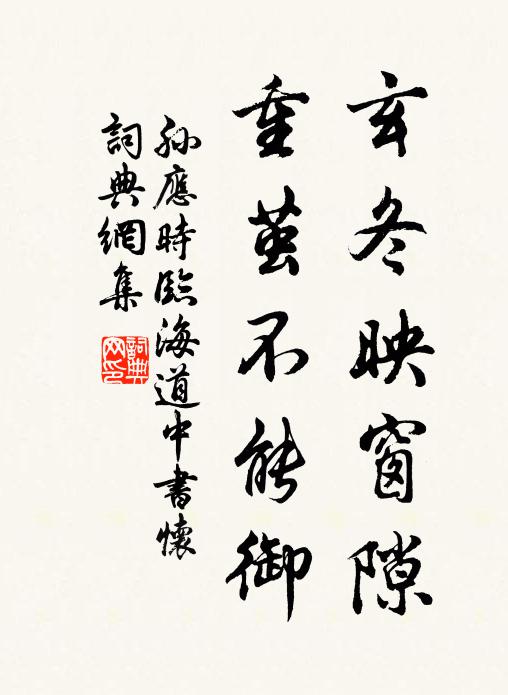 玄冬映窗隙
重茧不能御
孙應時臨海道中書懷
詞典網集
詞典网印